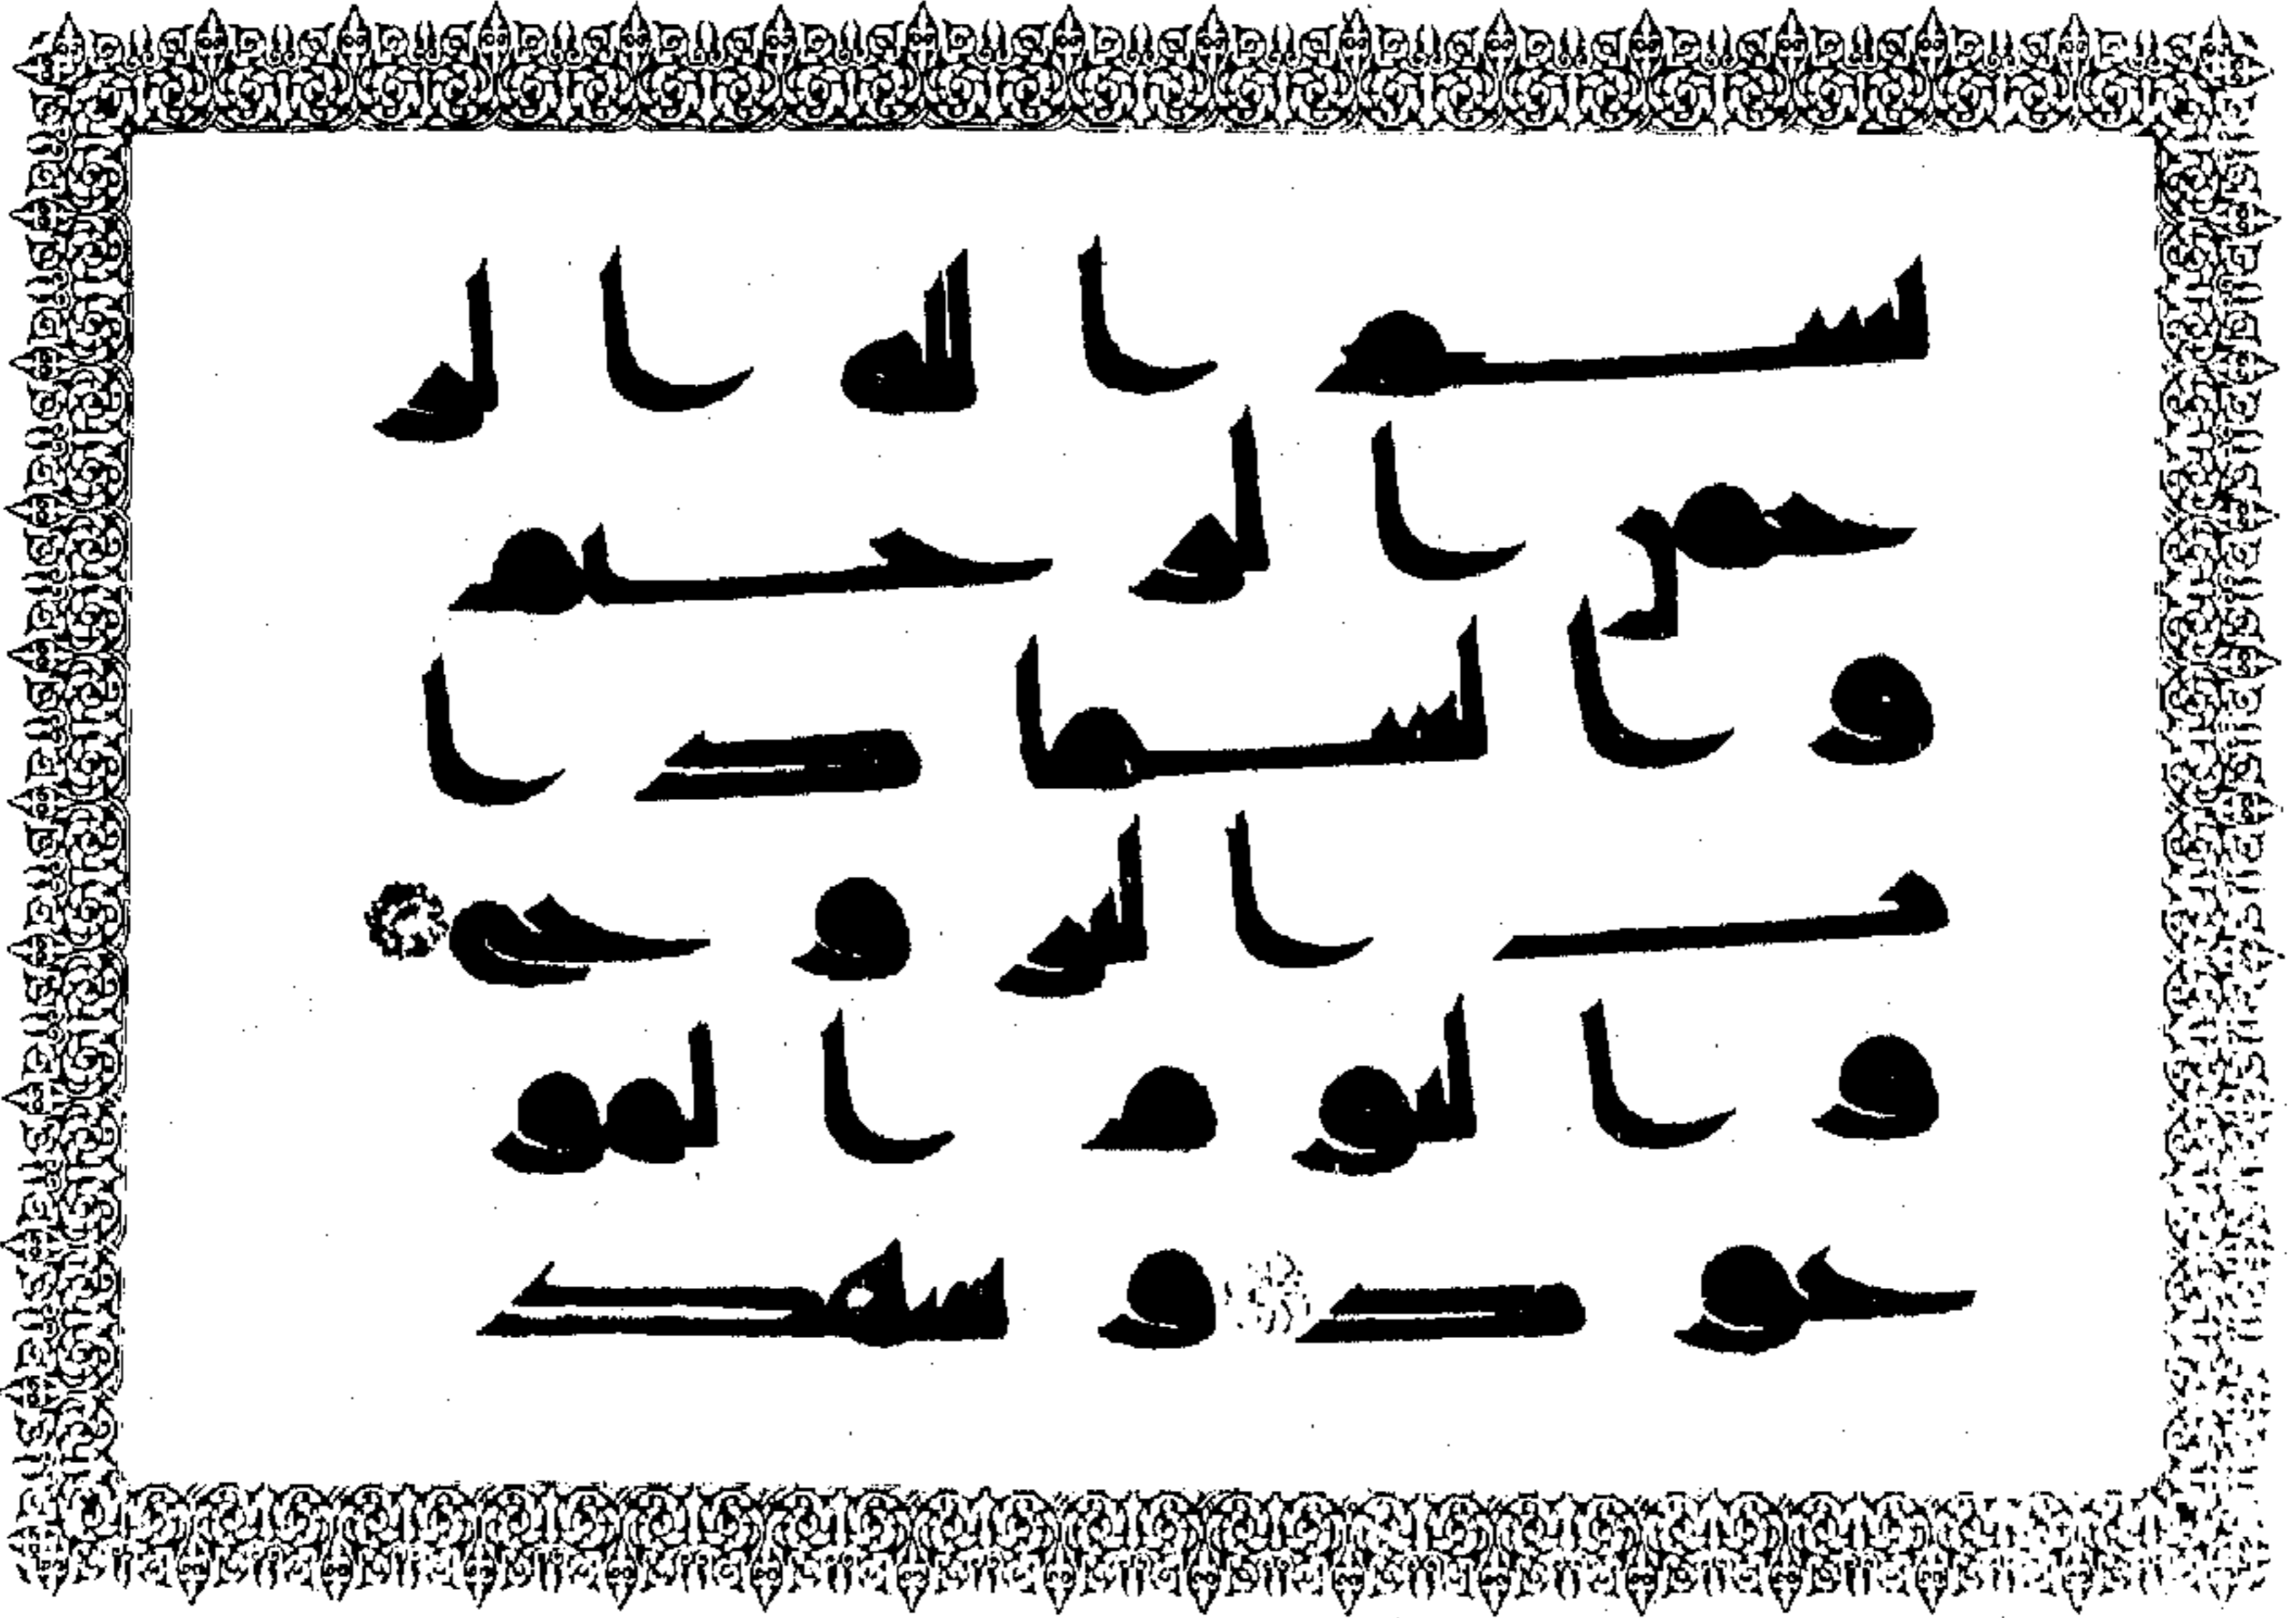 بسم الله الر
حمن الرحيم
و السما ذا
ت البروج
و اليوم المو
عود و شهد